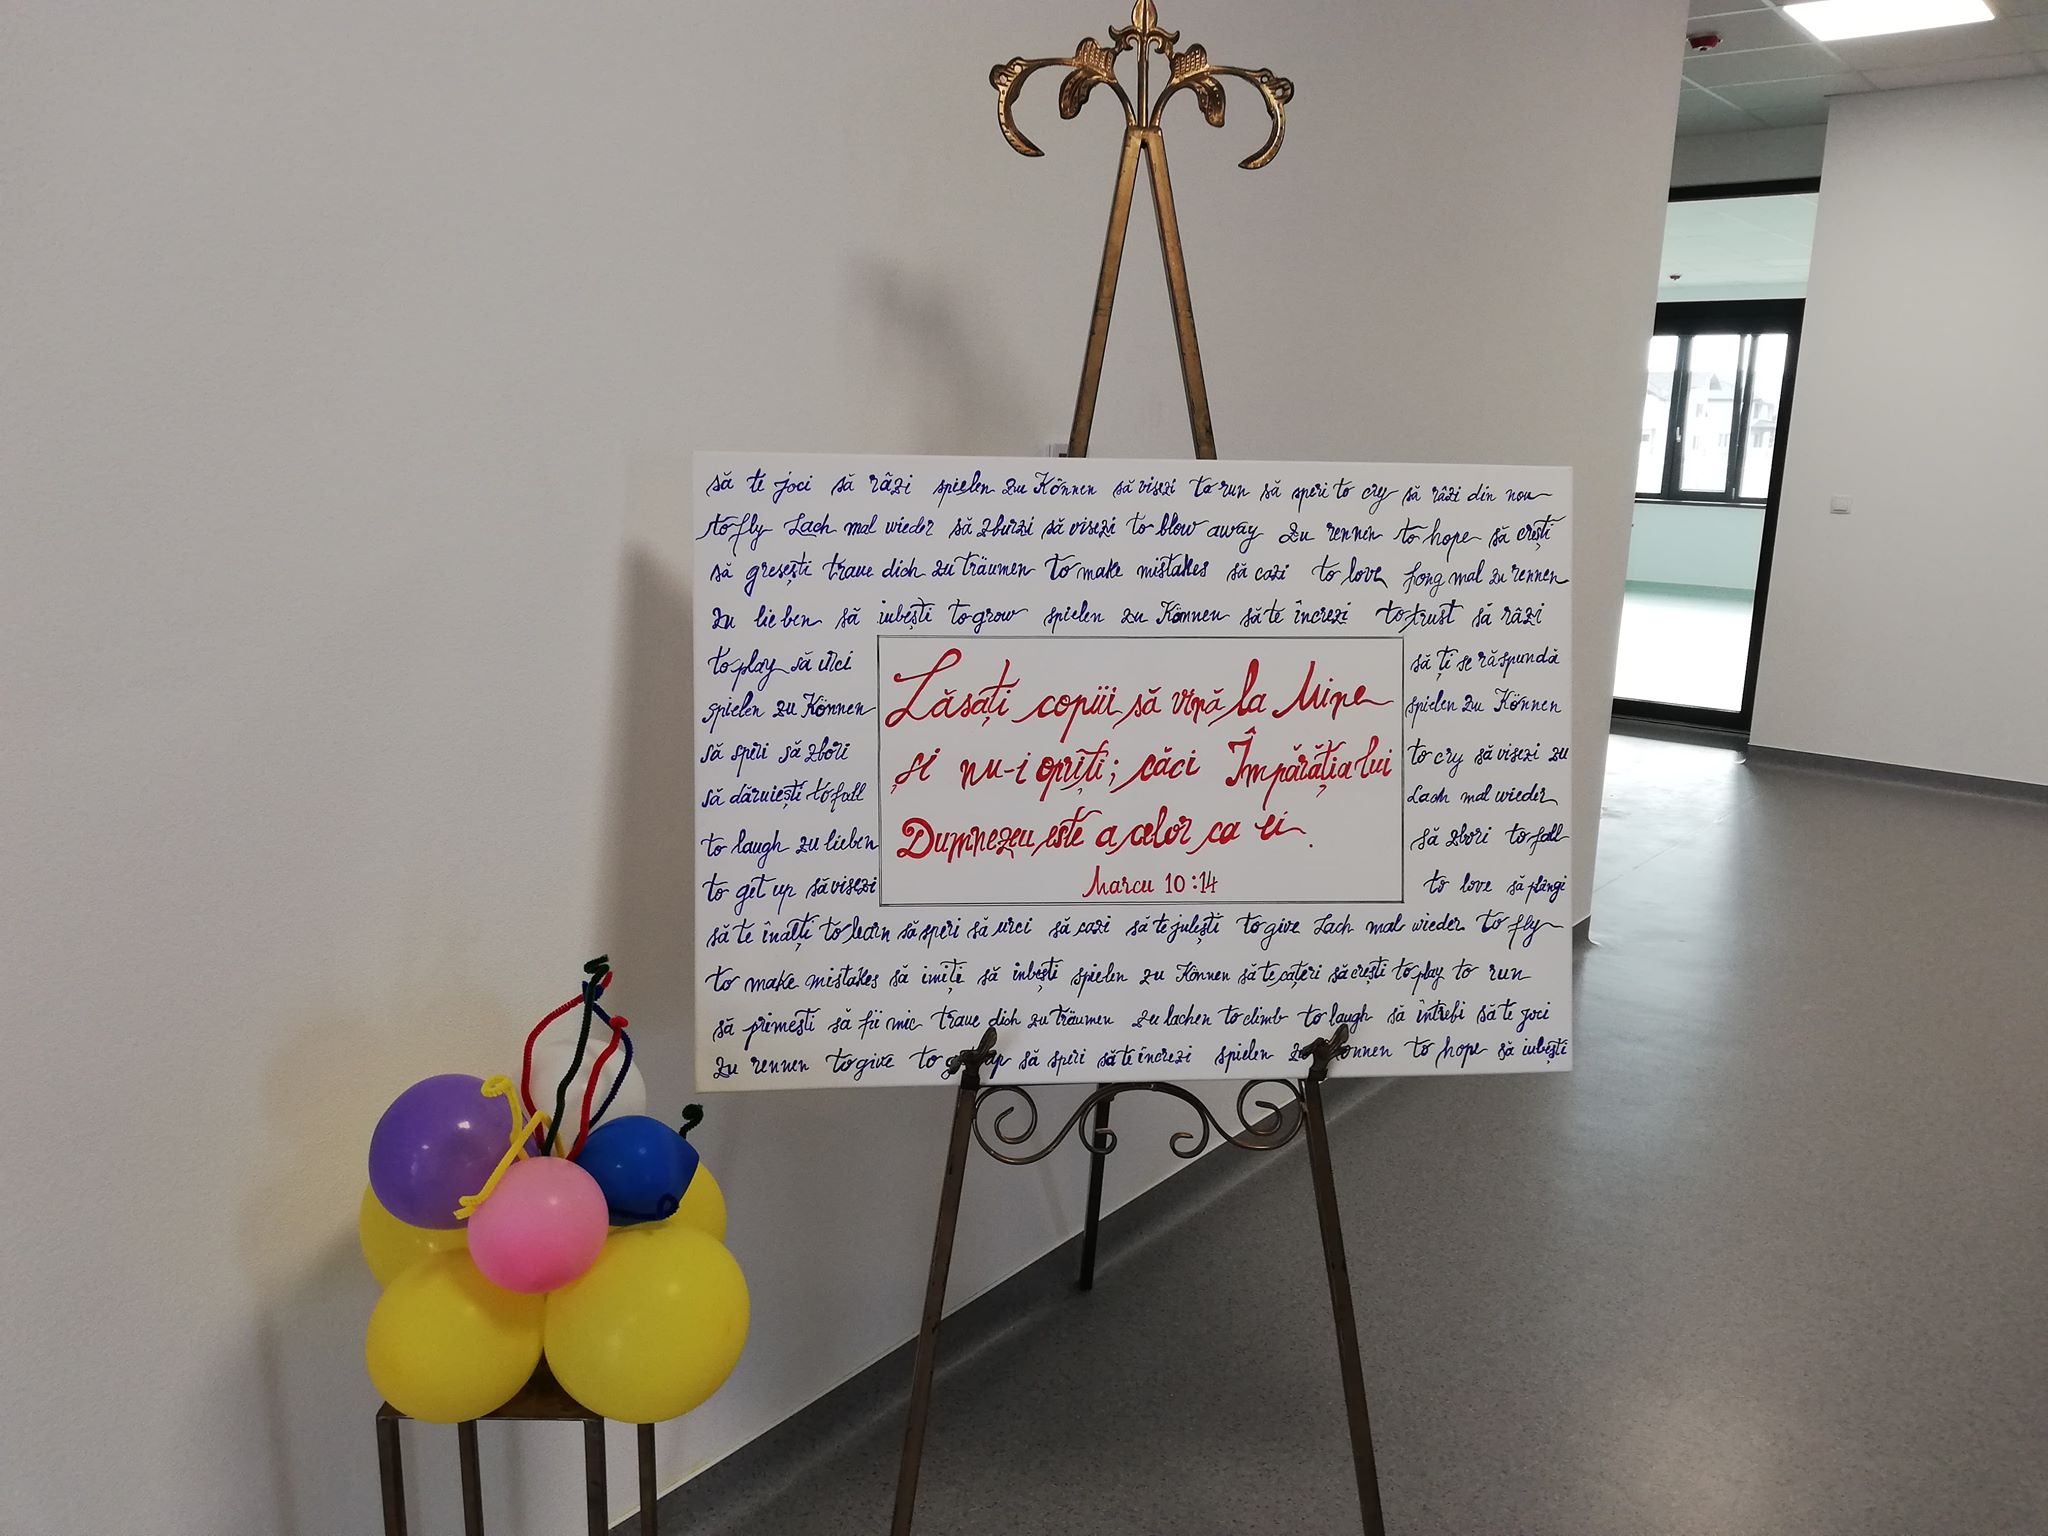 să te joci să râzi spielen zu Können să visezi to run să speri to cry să râzi din nou
to fly Lach mal wieder să zburzi să visezi to blow away zu rennen to hope să crești
să gresești traue dich zu träumen to make mistakes să cazi to love fong mal zu rennen
zu lieben să iubești to grow spielen zu Können să te încrezi to trust să râzi
to play să urci
spielen zu Können
să speri să zbori
să dăruiești to fall
to laugh zu lieben
to get up să visezi
Lăsați copiii să vină la Mine
și nu-i opriți; căci Împărăția lui
Dumnezeu este a celor ca ei.
Marcu 10:14
să ți se răspundă
spielen zu Können
to cry să visezi zu
Lach mal wieder
să zbori to fall
to love să plângi
să te înalți to learn să speri să urci să cazi să te julești to give Lach mal wieder to fly
to make mistakes să imiți să iubești spielen zu Können să te cațeri să crești to play to run
să primești să fii mic traue dich zu träumen zu lachen to climb to laugh să întrebi să te joci
zu rennen to give to get up să speri să te încrezi spielen zu Können to hope să iubești